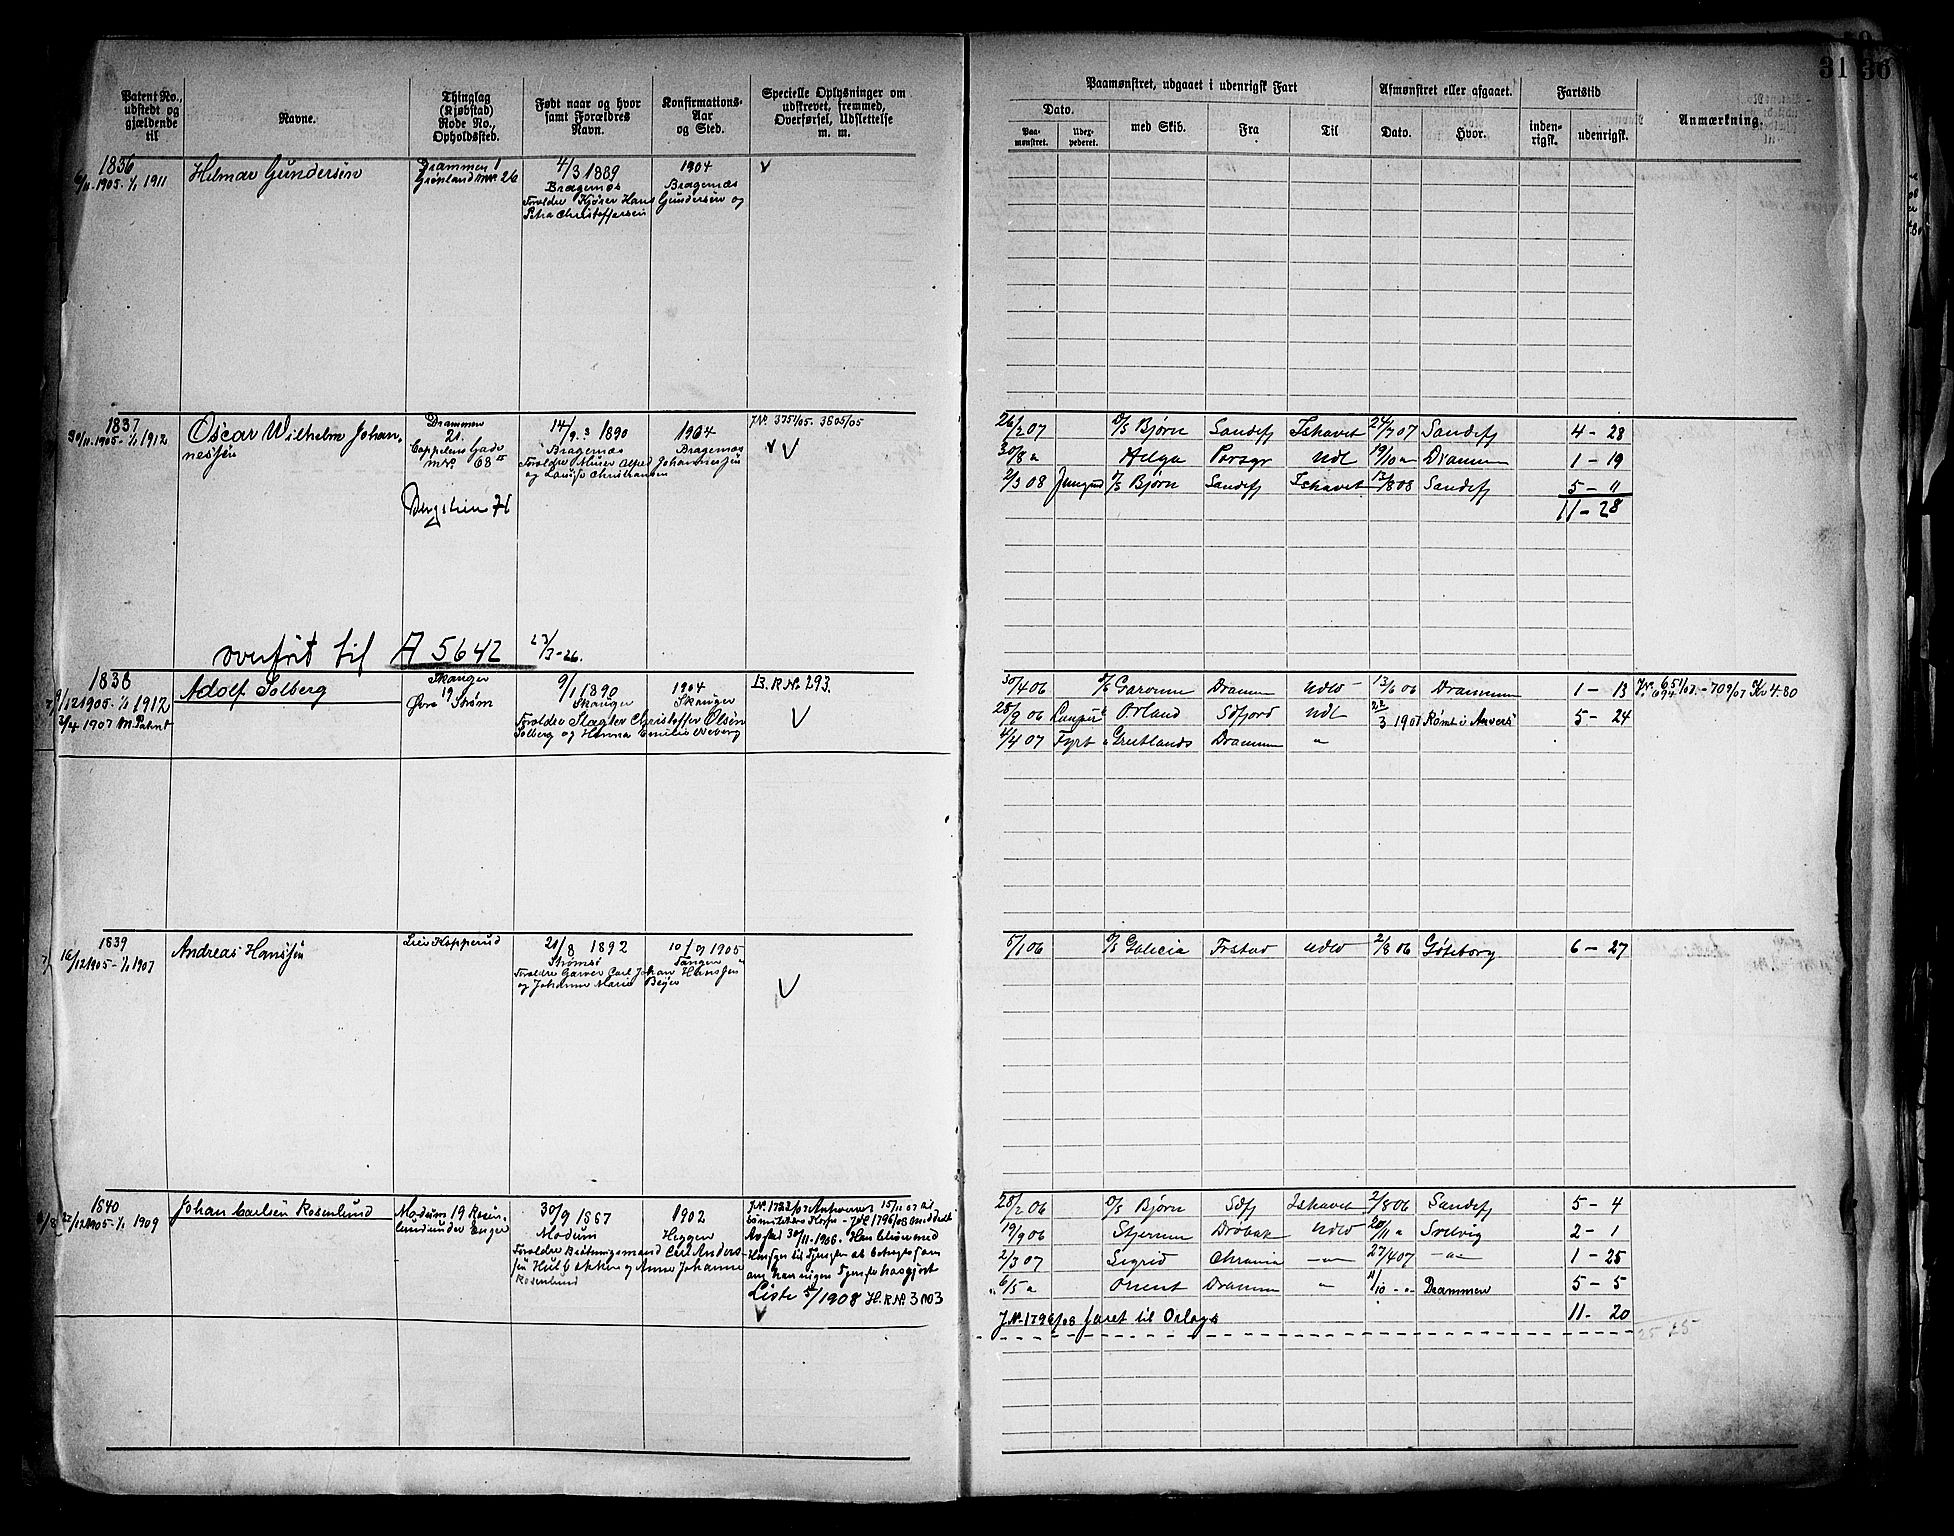 31 36
Patent No., udstedt og gjældende til
Navne.
Thinglag (Kjøbstad) Rode No., Opholdssted.
Født naar og hvor samt Forældres Navn.
Konfirmations-Aar og Sted.
Specielle Oplysninger om udskrevet, fremmed, Overførsel, Udslettelse m. m.
Paamønstret, udgaaet i udenrigsk Fart
Dato.
Paamønstret.
Udexpederet.
med Skib.
Fra
Til
Afmønstret eller afgaaet.
Dato.
Hvor.
Fartstid
indenrigsk.
udenrigsk.
Anmærkning.
1836
6/11 1905 - 1/1 1911
Helmar Gundersen
Drammen
Grønland mNr 26
4/3 1889
Bragernæs
Forældre Kjører Hans Gundersen og
Petra Christoffersen
1904
Bragernæs
V
1837
30/11 1905 - 1/1 1912
Oscar Wilhelm Johan-
nessen
Drammen
21.
Cappelens Gade
mNr. 68 II
Bergstien 71
14/9 1890
Bragernæs
Forældre Murer Alfred Johannessen
og Lovise Christiansen
1904
Bragernæs
J.N. 3751/05. 3805/05
V
26/2 07 D/S Bjørn Sandefj Ishavet 24/7 07 Sandefj 4 - 28
30/8 " Helga Porsgr Udl 19/10 " Drammen 1 - 19
2/3 08 Jungm D/S Bjørn Sandefj Ishavet 13/8 08 Sandefj 5 - "
11 - 28
overført til A 5642 23/3-26.
1838
9/12 1905 - 1/1 1912
3/4 1907 m. Patent
Adolf Solberg
Skauger
19
Øvre Strøm
9/1 1890
Skauger
Forældre Slagter Christoffer Olsen
Solberg og Hanna Emilie Neberg
1904
Skauger
B. R. Nº 293.
V
30/4 06 D/S Garonne Dramm Udlo 13/6 06 Drammen 1 - 13 J.N. 651/07. - 709/07 Kr 4.80
694
28/9 06 Lemper " Orland Sdfjord Udl 22/3 1907 Rømt i Anvers 5 - 24
4/4 07 Fyrb " Grutlands Drammen "
1839
16/12 1905 - 1/1 1907
Andreas Hanssen
Lier Kopperud
21/8 1892
Strømsø
Forældre Garver Carl Johan Hanssen
og Johanne Marie Beyer
10/9 1905
Tangen
V
5/1 06 D/S Galicia Frstad Udlo 2/8 06 Gøteborg 6 - 27
1840
27/12 1905 - 1/1 1909
Johan Carlsen Rosenlund
Modum 19 Rosen-
lund under Enger
30/9 1887
Modum
Forældre Bestningsmand Carl Anders-
sen Hulbækken og Anne Johanne
Rosenlund
1902
Heggen
J.N. 1796/08 Meddelt
Liste 5/1908 H.R.Nº 3003
V
28/2 06 D/S Bjørn Sdfj Ishavet 2/8 06 Sandefj 5 - 4
19/9 06 Stjernen Drøbak Udlo 20/11 " Svelvig 2 - 1
2/3 07 Sigrid Chrania -"- 27/4 07 -"- 1 - 25
6/5 " Orient Drammen " 11/10 -"- Drammen 5 - 5
J.N. 1796/08 faret til Orlogs 11 - 20
25 25